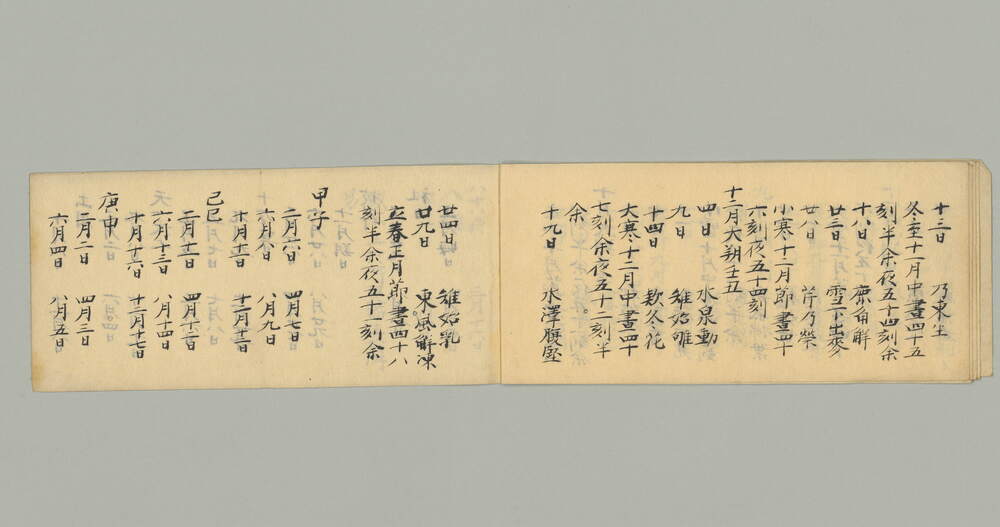 十三日　乃東生
冬至十一月中晝四十五
刻半余夜五十四刻余
十八日　麋角解
廿三日　雪下出麥
廿八日　芹乃榮
小寒十二月節晝四十
六刻夜五十四刻
十二月大朔壬丑
四日　水泉動
九日　雉始雊
十四日　欵冬花
大寒十二月中晝四十
七刻余夜五十二刻半
余。
十九日　水澤腹堅
廿四日　雉始乳
廿九日　東風解凍
立春正月節晝四十八
刻半余夜五十一刻余
甲子
二月六日　四月七日
六月八日　八月九日
十月十一日　十二月十二日
己巳
二月十一日　四月十二日
六月十三日　八月十四日
十月十六日　十二月十七日
庚申
二月二日　四月三日
六月四日　八月五日